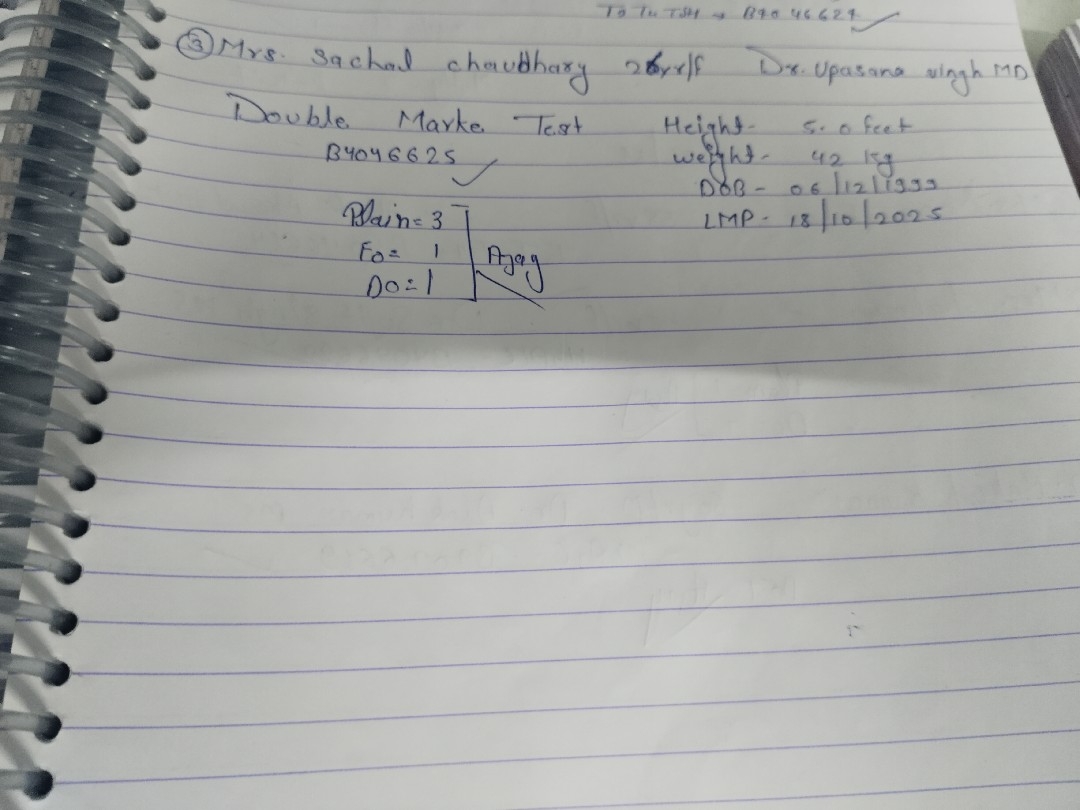 T3 T4 TSH → B4046627
③ Mrs. Sachal chaudhary 26yr/f Dr. Upasana singh MD
Double Marke Test Height- 5.0 feet
B4046625 weight- 42 kg
DOB- 06/12/1999
Plain= 3 LMP- 18/10/2025
Fo= 1
Do= 1